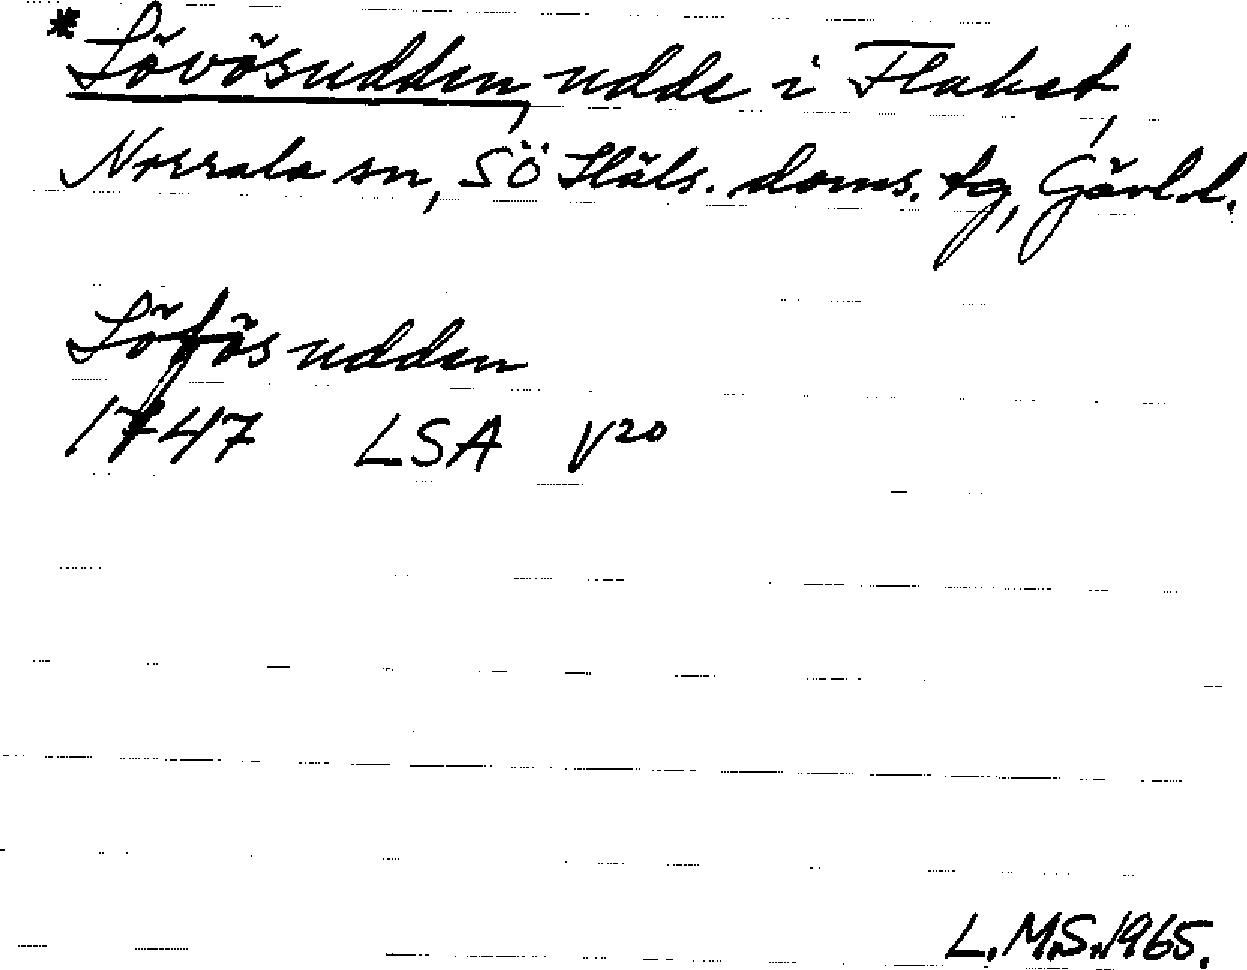 *Lövösudden, udde i Flaket,
Norrala sn, SÖ Häls. doms. tg, Gävld.
Löfös udden
1747 LSA V20
L.M.S. 1965.